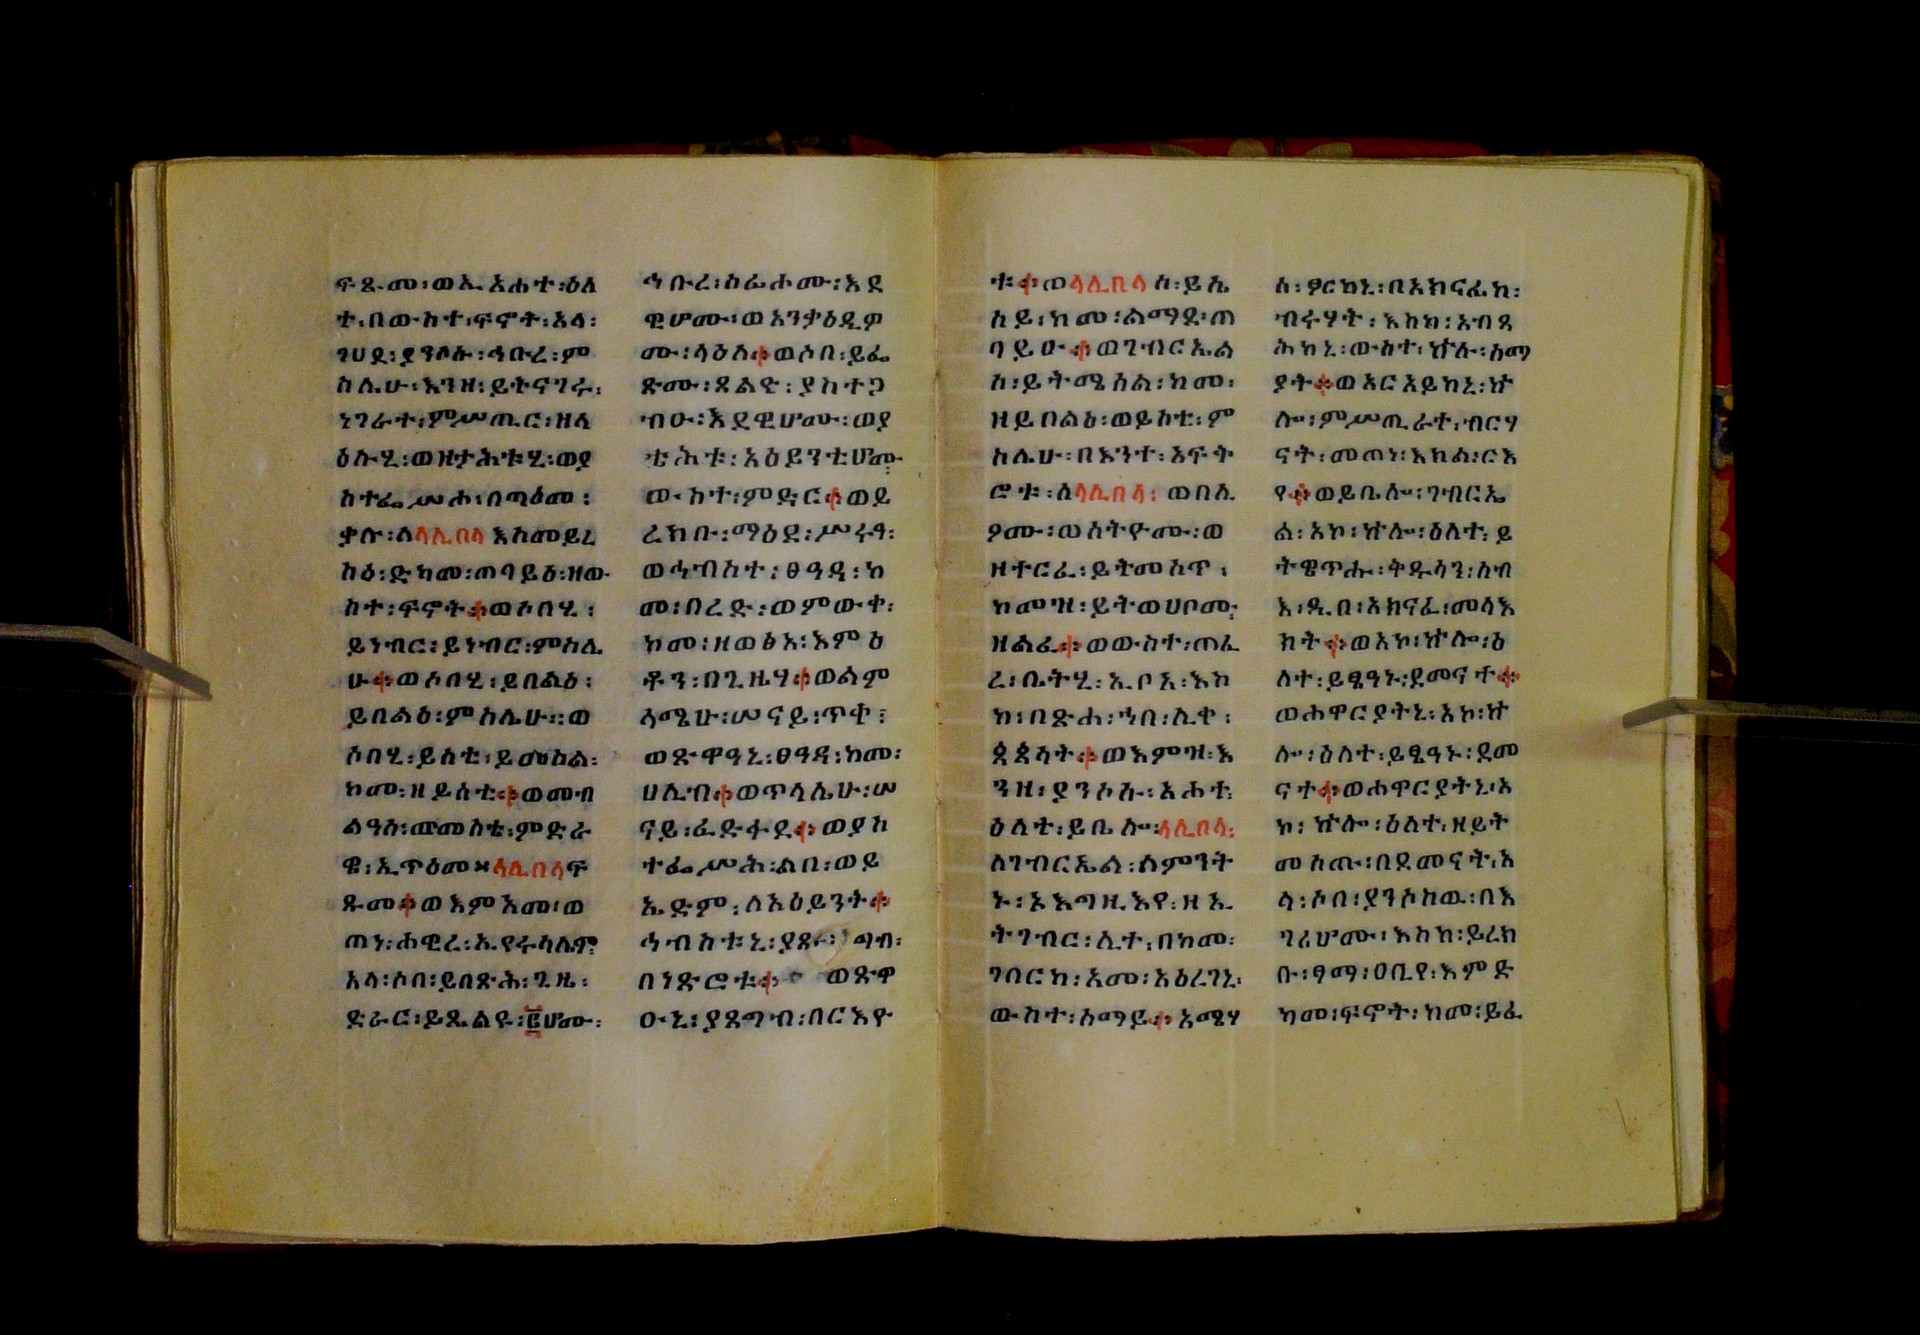 ፍጺሙ፡ወኢ አሐተ፡ዕለ
ተ፡በውስተ፡ፍኖት፡አላ፡
ገሀደ፡ያንሶሱ፡ኅቡረ፡ም
ስሌሁ፡እንዘ፡ይትናገሩ፡
ነገራተ፡ምሥጢር፡ዘላ
ዕሉሂ፡ወዘታሕቱሂ፡ወያ
ስተፌሥሐ፡በጣዕመ፡
ቃሉ፡ለላሊበላ እስመይረ
ስዕ፡ድካመ፡ጠባይዕ፡ዘው
ስተ፡ፍኖት፨ወሶበሂ፡
ይነብር፡ይነብር፡ምስሌ
ሁ፨ወሶበሂ፡ይበልዕ፡
ይበልዕ፡ምስሌሁ፡፡ወ
ሶበሂ፡ይሰቲ፡ይመስል፡
ከመ፡ዘይሰቲ፨ወመብ
ልዓሰ፡ወመስቴ፡ምድራ
ዌ፡ኢጥዕመ፠ላሊበላፍ
ጹመ፨ወእምአመ፡ወ
ጠነ፡ሐዊረ፡ኢየሩሳሌም፡
አላ፡ሶበ፡ይበጽሕ፡ጊዜ፡
ድራር፡ይጼልዩ፡፪ሆሙ፡
ኅቡረ፡ሰፊሖሙ፡እደ
ዊሆሙ፡ወአንቃዕዲዎ
ሙ፡ላዕለ፨ወሶበ፡ይፌ
ጽሙ፡ጸልዮ፡ያስተጋ
ብዑ፡እደዊሆሙ፡ወያ
ቴሕቱ፡አዕይንቲሆሙ
ውስተ፡ምድር፨ወይ
ረክቡ፡ማዕደ፡ሥሩዓ፡
ወኅብስተ፡ፀዓዳ፡ከ
መ፡በረድ፡ወምውቀ፡
ከመ፡ዘወፅአ፡እምዕ
ቶን፡በጊዜሃ፨ወልም
ላሜሁ፡ሠናይ፡ጥቀ፡
ወጽዋዓኒ፡ፀዓዳ፡ከመ፡
ሀሊብ፨ወጥላሌሁ፡ሠ
ናይ፡ፈድፋደ፨ወያስ
ተፌሥሕ፡ልበ፡ወይ
ኤድም፡ለአዕይንት፨
ኅብስቱኒ፡ያጸ ጣብ፡
በነጽሮቱ፨ወጽዋ
ዑኒ፡ያጸግብ፡በርእዮ
ቱ፨ወላሊበላ ሰ፡ይኤ
ስይ፡ከመ፡ልማደ፡ጠ
ባይዑ፨ወገብርኤል
ሰ፡ይትሜሰል፡ከመ፡
ዘይበልዕ፡ወይሰቲ፡ም
ስሌሁ፡በእንተ፡አፍት
ሮቱ፡ለላሊበላ፡ ወበሊ
ዖሙ፡ወሰትዮሙ፡ወ
ዘተርፈ፡ይትመሰጥ፡
ከመዝ፡ይትወሀቦሙ፡
ዘልፈ፨ወውስተ፡ጠፈ
ረ፡ቤትሂ፡ኢቦአ፡እስ
ከ፡በጽሐ፡ኀበ፡ሊቀ፡
ጳጳሳት፨ወእምዝ፡እ
ንዘ፡ያንሶሱ፡አሐተ፡
ዕለተ፡ይቤሎ፡ላሊበላ፡
ለገብርኤል፡ስምንት
ኑ፡ኦእግዚእየ፡ዘኢ
ትገብር፡ሊተ፡በከመ፡
ገበርከ፡አመ፡አዕረገኒ፡
ውስተ፡ሰማይ፨አሜሃ
ሰ፡ፆርከኒ፡በአክናፊከ፡
ብሩሃት፡እስከ፡አብጻ
ሕከኒ፡ውስተ፡ኵሉ፡ሰማ
ያት፨ወአርአይከኒ፡ኵ
ሎ፡ምሥጢራተ፡ብርሃ
ናት፡መጠነ፡እክል፡ርእ
የ፨ወይቤሎ፡ገብርኤ
ል፡አኮ፡ኵሎ፡ዕለተ፡ይ
ትዌጥሑ፡ቅዱሳን፡ሰብ
እ፡ዲበ፡አክናፈ፡መላእ
ክት፨ወአኮ፡ኵሎ፡ዕ
ለተ፡ይፄዓኑ፡ደመናተ፨
ወሐዋርያትኒ፡አኮ፡ኵ
ሎ፡ዕለተ፡ይፄዓኑ፡ደመ
ናተ፨ወሐዋርያትኒ፡አ
ኮ፡ኵሎ፡ዕለተ፡ዘይት
መሰጡ፡በደመናት፡አ
ላ፡ሶበ፡ያንሶስዉ፡በእ
ገሪሆሙ፡እስከ፡ይረክ
ቡ፡ፃማ፡ዐቢየ፡እምድ
ካመ፡ፍኖት፡ከመ፡ይፈ